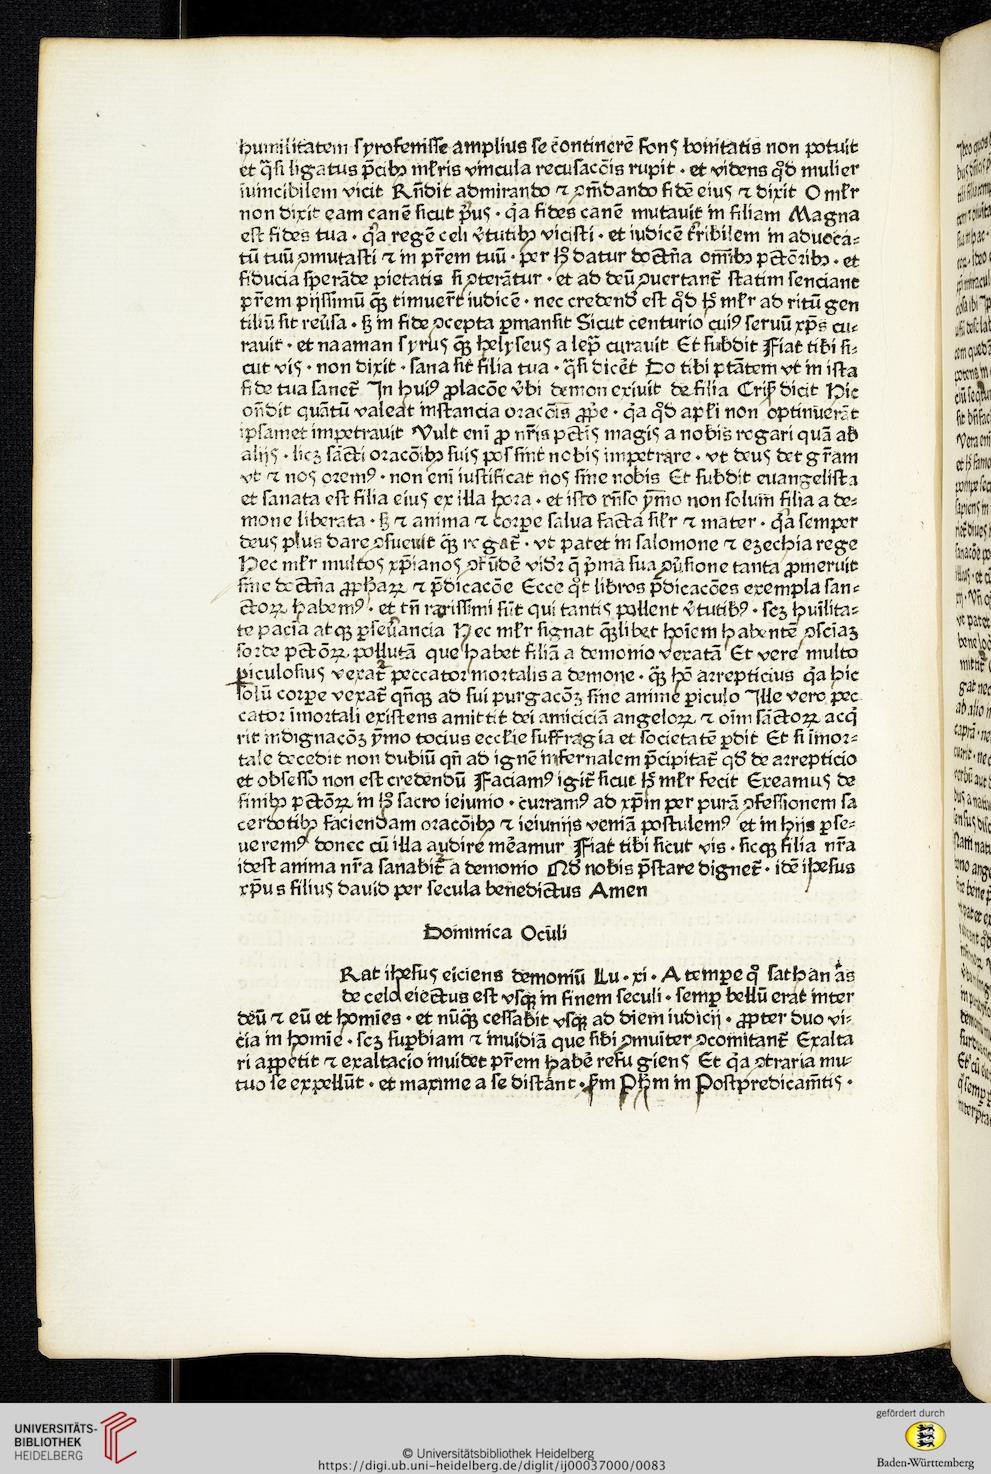 humilitatem syrofenisse amplius se cōtinerē fons bonitatis non potuit
et q̄si ligatus p̄cibꝫ mł̓ris vincula recusacōis rupit · et videns qd̓ mulier
iuincibilem vicit Rn̄dit admirando ⁊ ꝯm̄dando fidē eius ⁊ dixit O mł̓r
non dixit eam canē sicut p̓us · q̓a fides canē mutauit in filiam Magna
est fides tua · q̓a regē celi v̓tutibꝫ vicisti · et iudicē t̓ribilem in aduoca⸗
tū tuū ꝯmutasti ⁊ in pr̄em tuū · per hꝰ datur doctn̄a om̄ibꝫ pctōribꝫ · et
fiducia sperāde pietatis si ꝯterāt̄ur · et ad deū ꝯuertant̄ statim senciant
pr̄em pijssimū q̄ꝫ timuer̄t iudicē · nec credend̓ est qd̓ hꝰ mł̓r ad ritū gen
tiliū sit reu̓sa · sꝫ in fide ꝯcepta p̱mansit Sicut centurio cuiꝰ seruū xp̄s cu⸗
rauit · et naaman syrus q̄ꝫ helyseus a lep̄ curauit Et subdit Fiat tibi si⸗
cut vis · non dixit · sana sit filia tua · q̄si dicet̄ Do tibi ptātem vt in ista
fide tua sanet̄ In huiꝰ ꝓlacōe v̓bi demon exiuit de filia Cris̓ dicit Hic
on̄dit quātū valeat instancia oracōis ꝓp̄e · q̓a qd̓ apł̓i non optinuerāt
ipsamet impetrauit Vult eni̅ ꝓ nr̄is pctīs magis a nobis rogari quā ab
alijs · licꝫ sācti oracōibꝫ suis possint nobis impetrare · vt deus det gr̄am
vt ⁊ nos oremꝰ · non eni̅ iustificat nos sine nobis Et subdit euangelista
et sanata est filia eius ex illa hora · et isto rn̄so ymo non solum filia a de⸗
mone liberata · sꝫ ⁊ anima ⁊ corpe salua facta sił̓r ⁊ mater · q̓a semper
deus plus dare ꝯsueuit q̄ꝫ rogat̄ · vt patet in salomone ⁊ ezechia rege
Hec mł̓r multos xp̄ianos ꝯfūdē vid̓ꝫ q̄ p̓ma sua ꝯu̓sione tanta ꝓmeruit
sine doctn̄a ꝓphaꝝ ⁊ p̄dicacōe Ecce qt̓ libros p̄dicacōes exempla san⸗
ctoꝝ habemꝰ · et tn̄ rarissimi su̅t qui tantis pollent v̓tutibꝰ · scꝫ hu̅ilita⸗
te pacīa atqꝫ p̱seu̓ancia Hec mł̓r signat q̄mlibet hoi̅em habentē ꝯsciaꝫ
sorde pctōꝝ pollutā que habet filiā a demonio vexatā Et vere multo
p̱iculosius vexat̄ peccator mortalis a demone · q̄ꝫ hō arrepticius q̓a hic
solū corpe vexat̄ qn̄qꝫ ad sui purgacōꝫ sine anime p̱iculo Ille vero pec
cator i̅mortali existens amittit dei amiciciā angeloꝝ ⁊ oi̅m sāctoꝝ acq̓
rit indignacōꝫ ymo tocius eccł̓ie suffragia et societatē p̱dit Et si i̅mor⸗
tale decedit non dubiū qn̄ ad ignē infernalem p̄cipitat̄ qd̓ de arrepticio
et obsesso non est credendū Faciamꝰ igit̄ sicut hꝰ mł̓r fecit Exeamus de
finibꝫ pctōꝝ in hꝰ sacro ieiunio · curramꝰ ad xp̄m per purā ꝯfessionem sa
cerdotibꝫ faciendam oracōibꝫ ⁊ ieiunijs veniā postulemꝰ et in hijs p̱se⸗
ueremꝰ donec cū illa audire me̅amur Fiat tibi sicut vis · sicqꝫ filia nr̄a
idest anima nr̄a sanabit̄ a demonio Qd̓ nobis p̄stare dignet̄ · idē ihesus
xp̄us filius dauid per secula benedictus Amen
Dominica Oculi
Rat ihesus eiciens demoniū Lu · xi · A tempe qͦ sathanās
de celo eiectus est vsqꝫ in finem seculi · semp̱ bellū erat inter
deū ⁊ eū et homi̅es · et nūq̄ꝫ cessabit vsqꝫ ad diem iudicij · ꝓpter duo vi⸗
cia in homi̅e · scꝫ sup̱biam ⁊ inuidiā que sibi ꝯmuīter ꝯcomitant̄ Exalta
ri appetit ⁊ exaltacio inuidet pr̄em habē refugiens Et q̓a ꝯtraria mu⸗
tuo se expellūt · et maxime a se distānt · sm̄ Ph̄m in Postpredicam̄tis ·
UNIVERSITÄTS-
BIBLIOTHEK
HEIDELBERG
© Universitätsbibliothek Heidelberg
https://digi.ub.uni-heidelberg.de/diglit/ij00037000/0083
gefördert durch
Baden-Württemberg